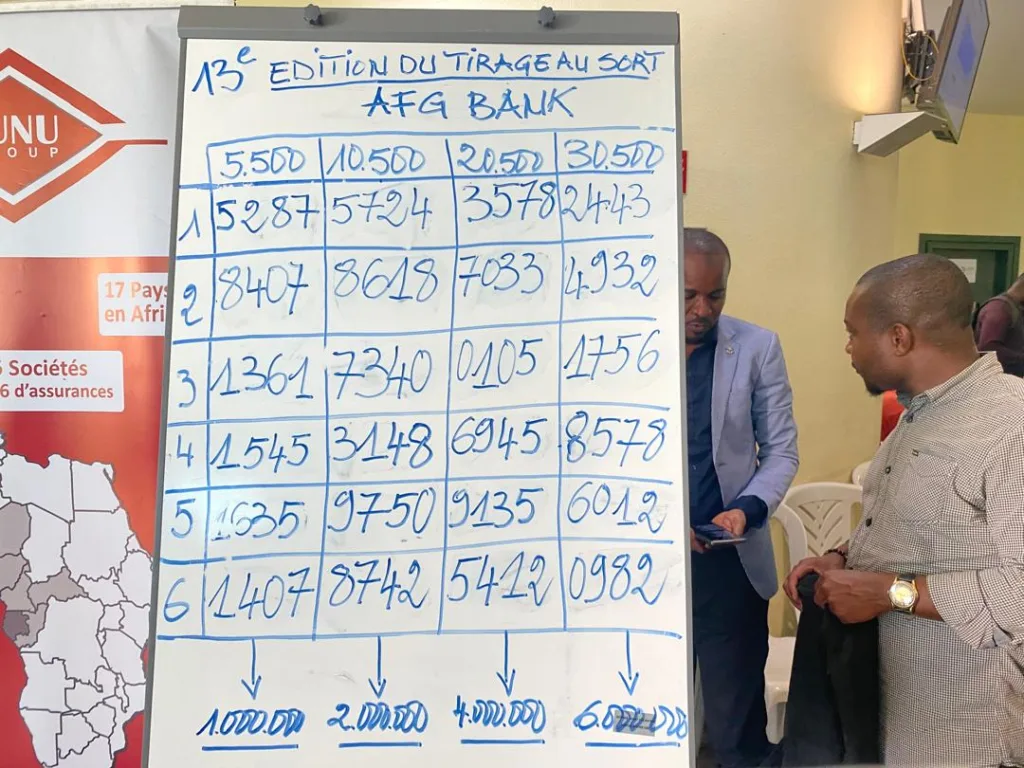 13e EDITION DU TIRAGE AU SORT
AFG BANK
5.500 10.500 20.500 30.500
1 5287 5724 3578 2443
2 8407 8618 7033 4932
3 1361 7340 0105 1756
4 1545 3148 6945 8578
5 1635 9750 9135 6012
6 1407 8742 5412 0982
1.000.000 2.000.000 4.000.000 6.000.000
UNU
OUP
17 Pays
en Afri
Sociétés
6 d'assurances